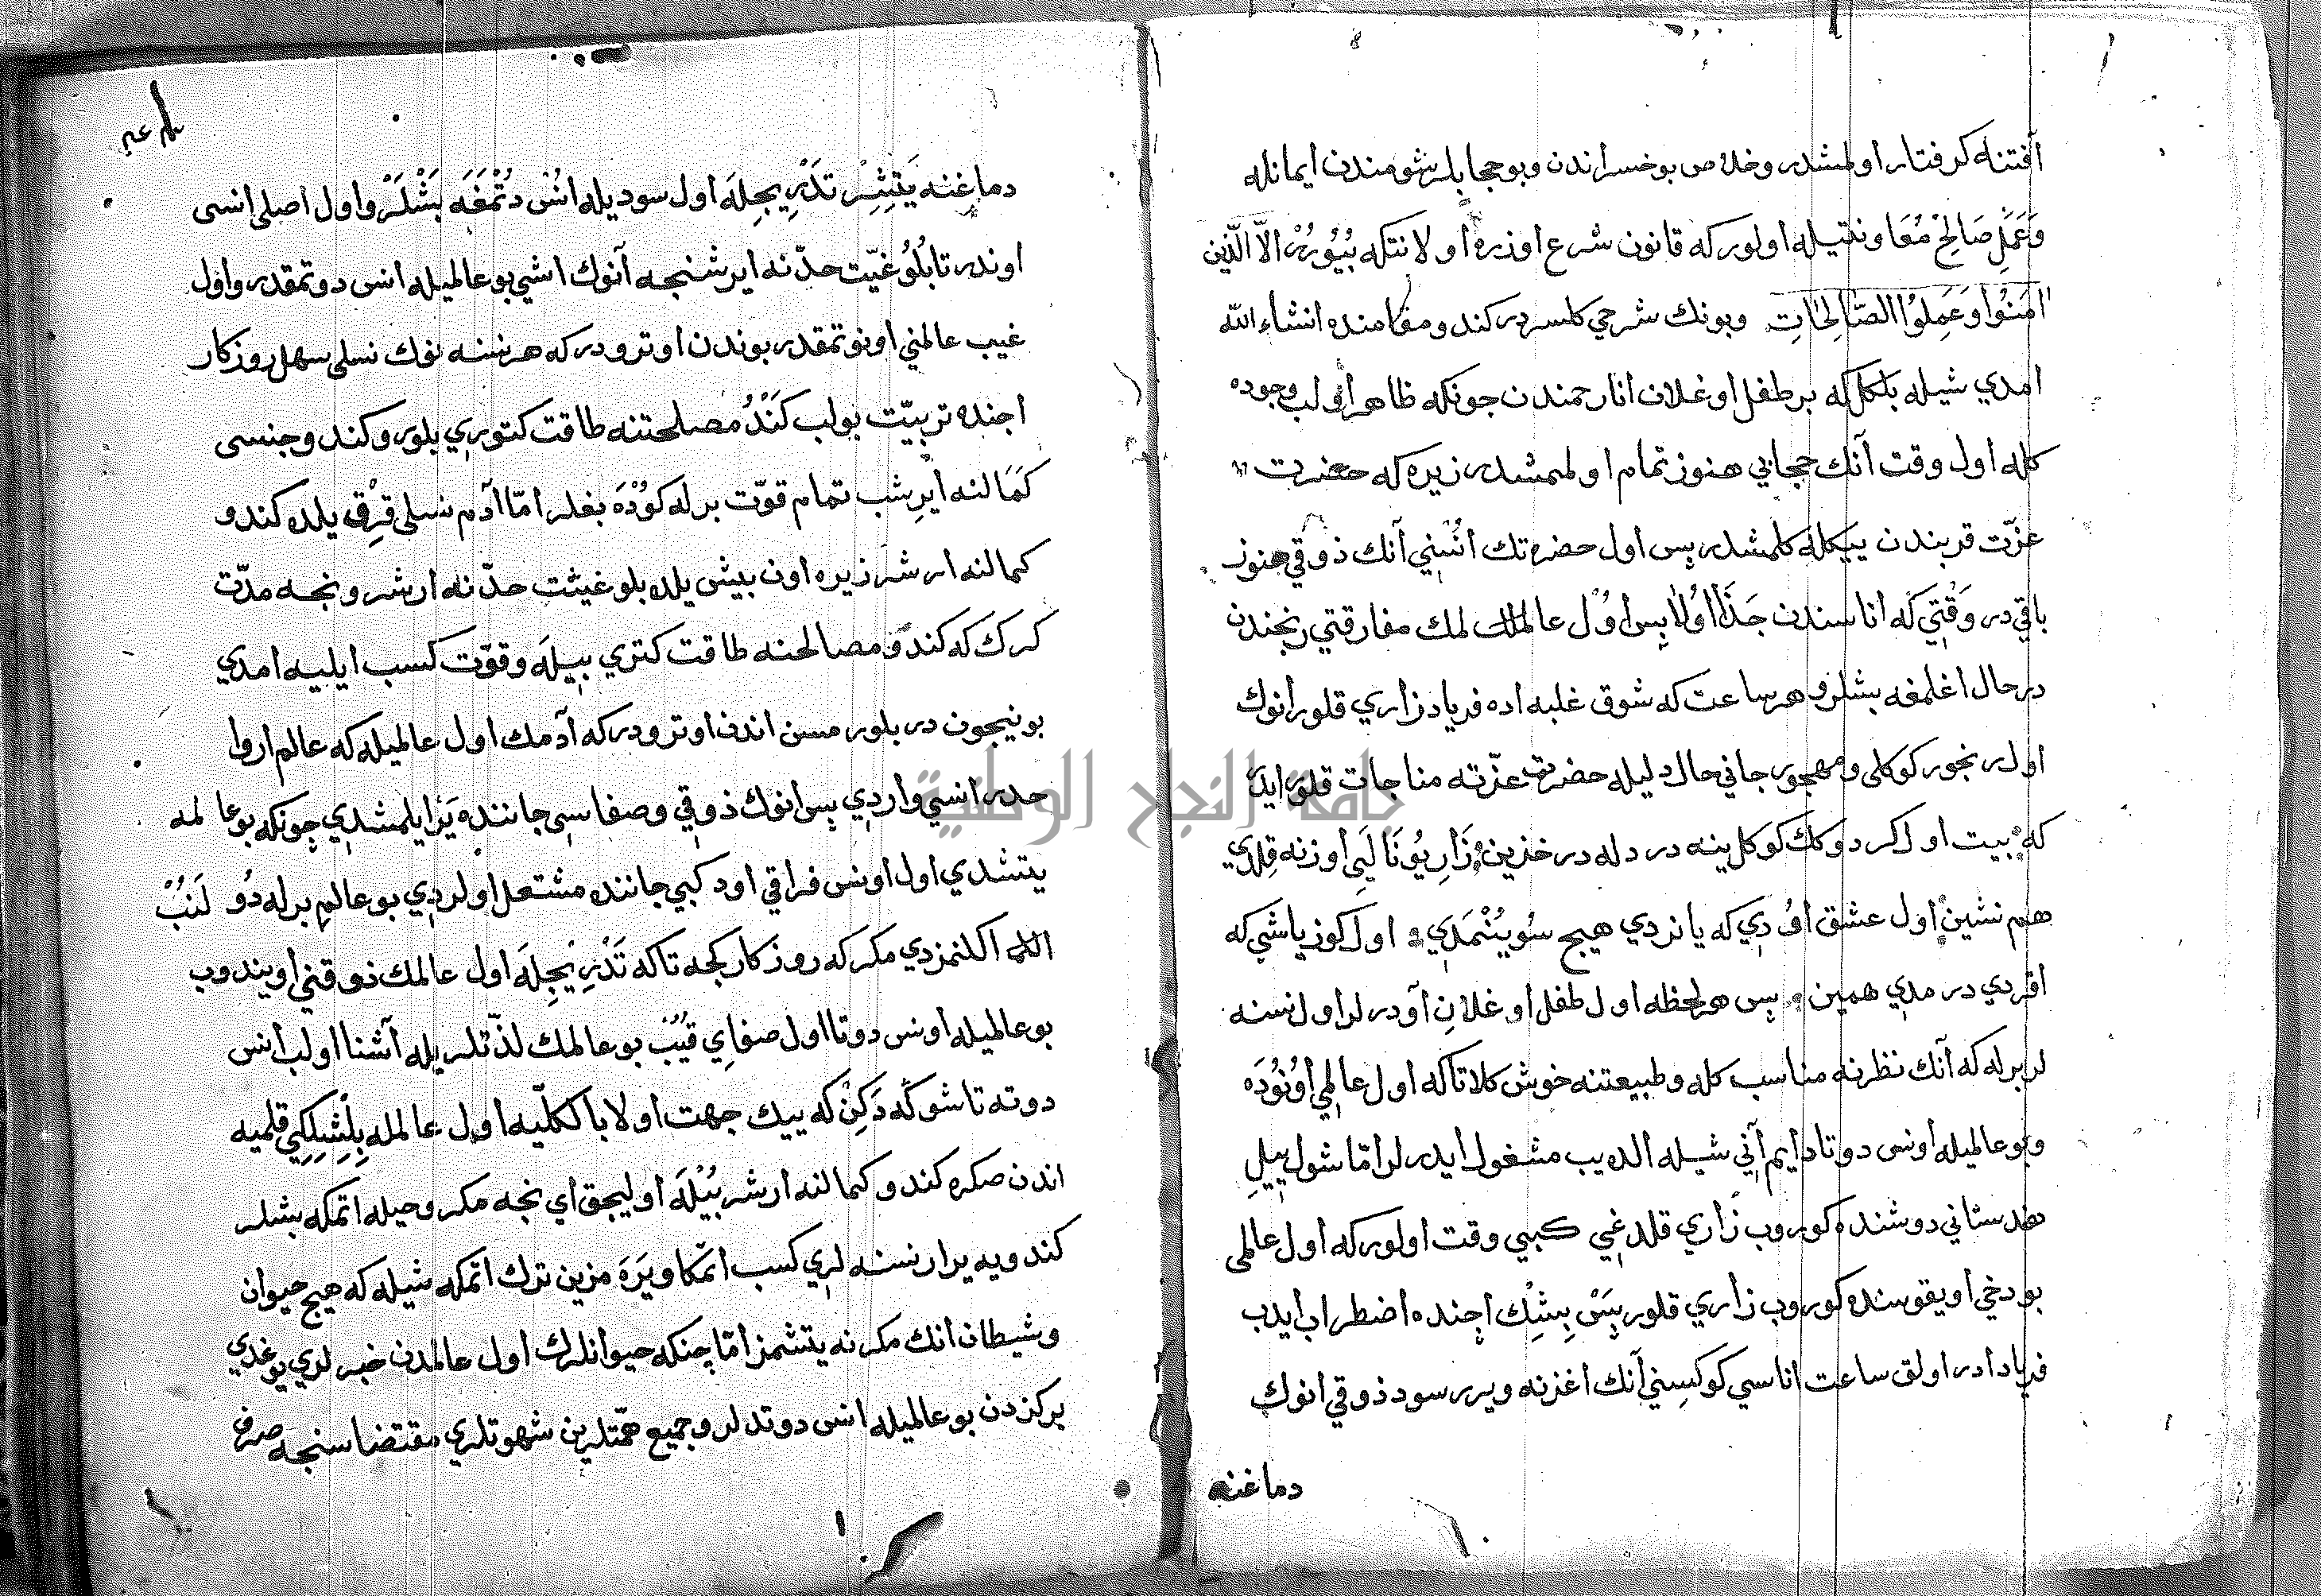 آفتنه كرفتار اولمشدر وخلاص بو خسراندن وبو حجابلر شومندن ايمانله
وَعَمَلِ صَالِحْ مُعَاونتيله اولور كه قانون شرع اوزره اولا نتكه بُيُورُرْ الاّ الّذين
امَنُوا وَعَمِلوُا الصّالِحَاتِ وبونك شرحي كلسردر كندو مقامنده انشاء الله
امدي شيله بلكل كه بر طفل اوغلان انا رحمندن جونكه ظاهر اولب وجوده
كله اول وقت آنك حجابي هنوز تمام اولممشدر زيره كه حضرت
عزّت قربندن ييكله كلمشدر پس اول حضرتك انسني آنك ذوقي هنوز
باقي در وَقْتِي كه اناسندن جَدَا اوُلا پس اوُل عالملك مفارقتي رنجندن
درحال اغلمغه بشلر و هر ساعت كه شوق غلبه اده فرياد زاري قلور انوك
اول رنجور كوكلي و مهجور جاني حال دليله حضرت عزّته مناجات قلور ايدر
كه بيت اول كر دوكك كوكل ينه در دله در خزين زَارِ يوُنَا لَيِ اوزنه قِلدي
هم نشين اول عشق اوُدِي كه ياندردي هيج سُويُنْمَدِي اول كوز ياشي كه
اقردي در مدي همين پس هر لحظه اول طفل اوغلانِ آودرلر اول نسنه
لر برله كه آنك نظرنه مناسب كله و طبيعتنه خوش كلا تا كه اول عالمي اوُنوُدَه
وبو عالميله اونس دوتا دايم آني شيله الديب مشغول ايدرلر امّا شول پيلِ
هندستاني دوشنده كوروب زاري قلدغي كبيي وقت اولور كه اول عالمي
بو دخي اويقوسنده كوروب زاري قلور پَسْ بِشِك اچنده اضطراب ايدب
فرياد ادر اولق ساعت اناسي كوكسِني آنك اغزنه ويرر سود ذوقي انوك
دماغنه
دماغنه يَتِشِرْ تدَرِيجِلَه اول سوديله اُنس دُتْمَغَه بَشْلَرْ واول اصلي انسي
اوندر تا بُلوُغيّت حدّنه ايرشنجه آنوك اشي بو عالميله انس دوتمقدر واول
غيب عالمني اونوتمقدر بوندن اوترودر كه هر نسنه نوك نسلي سهل روزكار
اجنده تربيّت بولب كَنْدُ مصلحتنه طاقت كتوري بلور و كندو جنسي
كَمَالنه ايرشب تمام قوّت برله كوُدَه بغلر امّا آدم نسلي قرق يلده كندو
كمالنه ارشر زيره اون بيش يلده بلوغيّت حدّنه ارشر و نجه مدّت
كرك كه كندو مصالحنه طاقت كتري بيلَه وقوّت كسب ايليه امدي
بونيجون در بلور مسن اندن اوترودر كه آدمك اول عالميله كه عالم اروا
حدر انسي واردي پس انوك ذوقي وصفاسي جاننده يَرْ ايلمشدي جونكه بو عالمه
يتشدي اول اونس فراقي اود كبي جاننده مشتعل اولردي بو عالم برله دوُلَنُبْ
اكلنمزدي مكر كه روزكار كجه تا كه تَدْرِيْجِلَه اول عالمك ذوقني اويندوب
بو عالميله اونس دوتا اول صفايِ قيُبْ بو عالمك لذّتلريله آشنا اولب انس
دوته تا شو كَه دَكِنْ كه ييك جهت اولا بالكلّيه اول عالمله بِلِشِلِكي قلميه
اندن صكره كندو كمالنه ارشر بُيْلَه اوليجق اي نجه مكر وحيله اتمكه بشلر
كندويه يرار نسنه لري كسب اتمكا ويَرَه مزين ترك اتمكه شيله كه هيج حيوان
وشيطان انك مكرنه يتشمز امّا چنكه حيوانلرك اول عالمدن خبرلري يوغدي
يركزدن بو عالميله انس دوتدلر وجميع همّتلرين شهوتلري مقتضاسنجه صرف